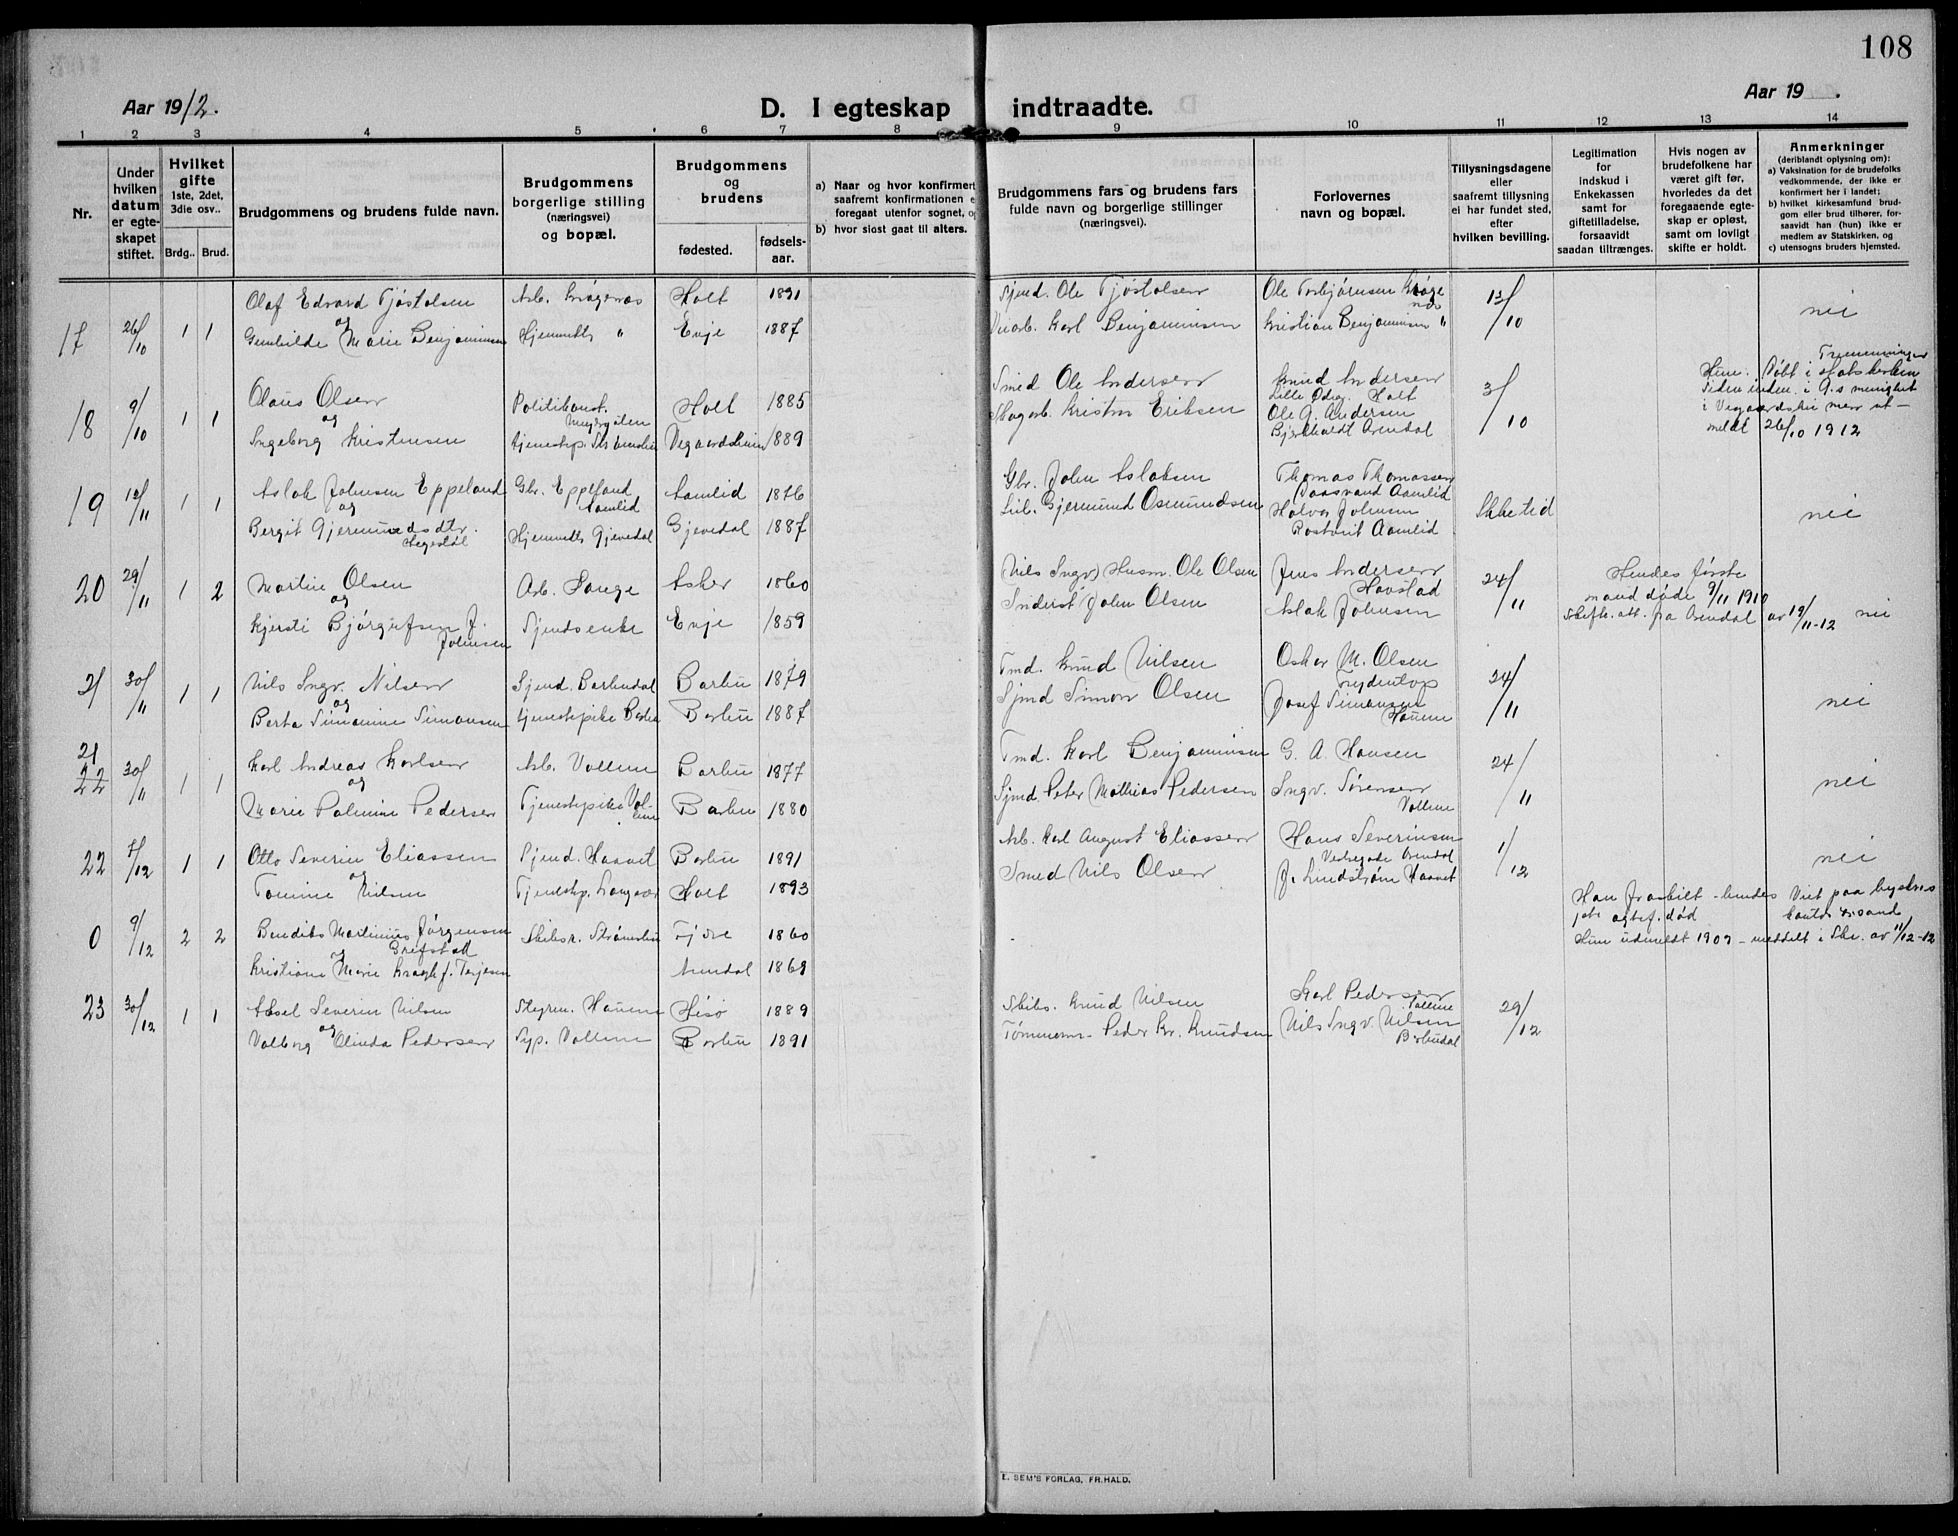 108
Aar 1912.
D. I egteskap indtraadte.
Aar 19 .
1 2 3 4 5 6 7 8 9 10 11 12 13 14
Nr.
Under hvilken datum er egte-skapet stiftet.
Hvilket gifte 1ste, 2det, 3die osv..
Brdg.. Brud.
Brudgommens og brudens fulde navn.
Brudgommens borgerlige stilling (næringsvei) og bopæl.
Brudgommens og brudens
fødested.
fødsels-aar.
a) Naar og hvor konfirmert saafremt konfirmationen e foregaat utenfor sognet, og
b) hvor sidst gaat til alters.
Brudgommens fars og brudens fars fulde navn og borgerlige stillinger (næringsvei).
Forlovernes navn og bopæl.
Tillysningsdagene eller saafremt tillysning ei har fundet sted, efter hvilken bevilling.
Legitimation for indskud i Enkekassen samt for giftetilladelse, forsaavidt saadan tiltrænges.
Hvis nogen av brudefolkene har været gift før, hvorledes da det foregaaende egte-skap er opløst, samt om lovligt skifte er holdt.
Anmerkninger (deriblandt oplysning om):
a) Vaksination for de brudefolks vedkommende, der ikke er konfirmert her i landet;
b) hvilket kirkesamfund brud-gom eller brud tilhører, for-saavidt han (hun) ikke er medlem av Statskirken, og
c) utensogns bruders hjemsted.
Olaf Edvard Tjøstolsen Arb. Krågenæs Holt 1891 Sjmd. Ole Tjøstolsen Ole Torbjørnsen Kråge
næs
17 26/10 1 1 og
Gunhilde Marie Benjaminsen Hjemmedt " Evje 1887 Karl Benjaminsen Kristian Benjaminsen " 13/10 nei
Olaus Olsen Politikonst. Holt 1885 Smed Ole Andersen Knud Andersen
Holt
18 9/10 1 1 og
Ingeborg Kristensen Vegaardsheien 1889 Kristen Eriksen Ole G. Andersen
Arendal 3/10
Tremenninger
Hun. Døbt i statskirken
meldt 26/10 1912
Aslak Johnsen Eppeland Gbr. Eppeland
Aamlid Aamlid 1876 Gbr. John Aslaksen Thomas Thomassen
Aamlid
19 12/11 1 1 og
Bergit Gjermundsdtr. Hjemmedt Gjevedal Gjevedal 1887 Gjermund Osmundsen Halvor Johnsen
Aamlid Ikke tid nei
20 29/11 1 2 Martin Olsen Arb. Longe Asker 1860 Husm. Ole Olsen Jens Andersen
Havstad 24/11 Hendes første
og
Kjersti Bjørgufsen f.
Johnsen Sjmdsenke Evje 1859 Inderst John Olsen Aslak Johnsen mand døde 9/11 1910
Skifte. att. fra Arendal av 19/11-12 nei
21 30/11 1 1 Nils Ingv. Nilsen Sjmd. Barbudal Barbu 1879 Tmd. Knud Nilsen Oskar M. Olsen 24/11
og
Berta Simonine Simonsen tjenestepike Barbu Barbu 1887 Sjmd Simon Olsen Josef Simonsen nei
21
22 30/11 1 1 Karl Andreas Karlsen Arb. Vollene Barbu 1877 Tmd. Karl Benjaminsen G. A. Hansen 24/11
og
Marie Palmine Pedersen Tjenestepike Vol-
lene Barbu 1880 Sjmd. Peter Mathias Pedersen Ingv. Sørensen
Vollene nei
22 7/12 1 1 Otto Severin Eliassen Sjmd. Haavet Barbu 1891 Arb. Karl August Eliassen Hans Severinsen
Arendal 1/12
og
Tomine Nilsen Tjenestep. Holt 1893 Smed Nils Olsen J. Lindstrøm Haavet nei
0 9/12 2 2 Bendiks Martinius Jørgensen
Grefstad Skibsr. Fjære 1860
og
Kristiane Marie Kragh f. Terjesen Arendal 1869
Han fraskilt - hendes Viet paa byskriv
død
Hun udmeldt 1907 - meddelt i Skr. av 11/12-12
23 30/12 1 1 Aksel Severin Nilsen Styrm. Hisø 1889 Skibs. Knud Nilsen Karl Pedersen
Vollene 29/12
og
Valborg Olinda Pedersen Syp. Vollene Barbu 1891 Tømmerm. Peder Kr. Knudsen Nils Ingv. Nilsen
Barbudal
E. SEM'S FORLAG, FR.HALD.